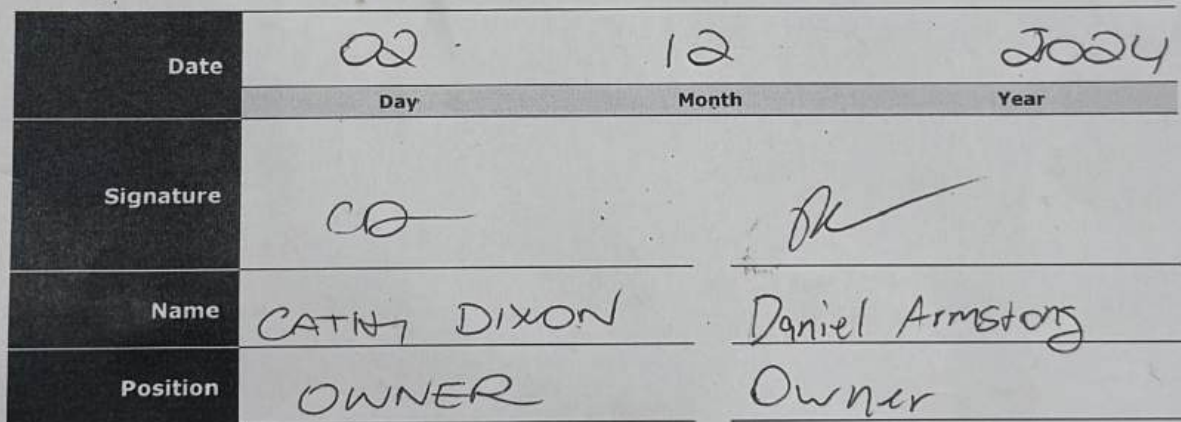 Date 02 12 2024
Day Month Year
Signature CD
Name CATHY DIXON Daniel Armstong
Position OWNER Owner